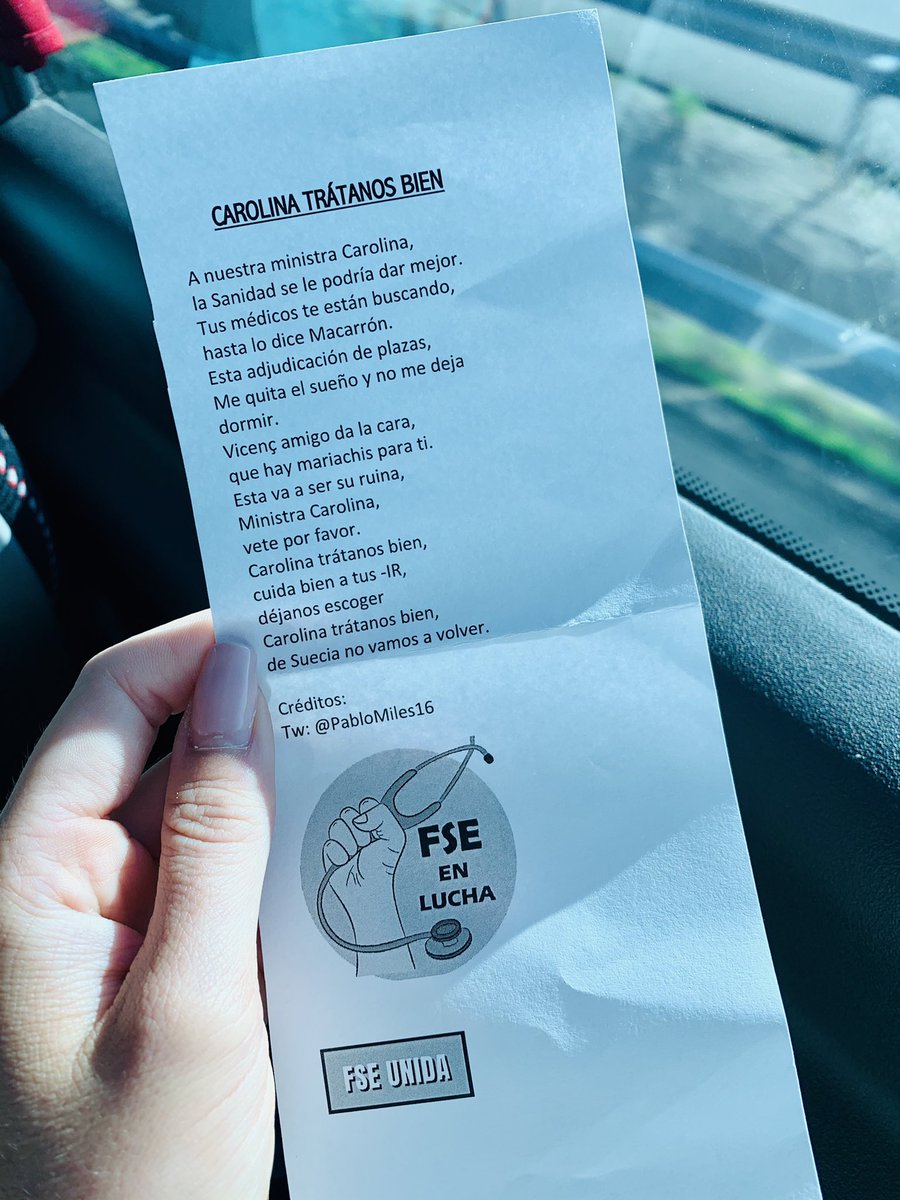 CAROLINA TRÁTANOS BIEN
A nuestra ministra Carolina,
la Sanidad se le podría dar mejor.
Tus médicos te están buscando,
hasta lo dice Macarrón.
Esta adjudicación de plazas,
Me quita el sueño y no me deja
dormir.
Vicenç amigo da la cara,
que hay mariachis para ti.
Esta va a ser su ruina,
Ministra Carolina,
vete por favor.
Carolina trátanos bien,
cuida bien a tus -IR,
déjanos escoger
Carolina trátanos bien,
de Suecia no vamos a volver.
Créditos:
Tw: @PabloMiles16
FSE
EN
LUCHA
FSE UNIDA